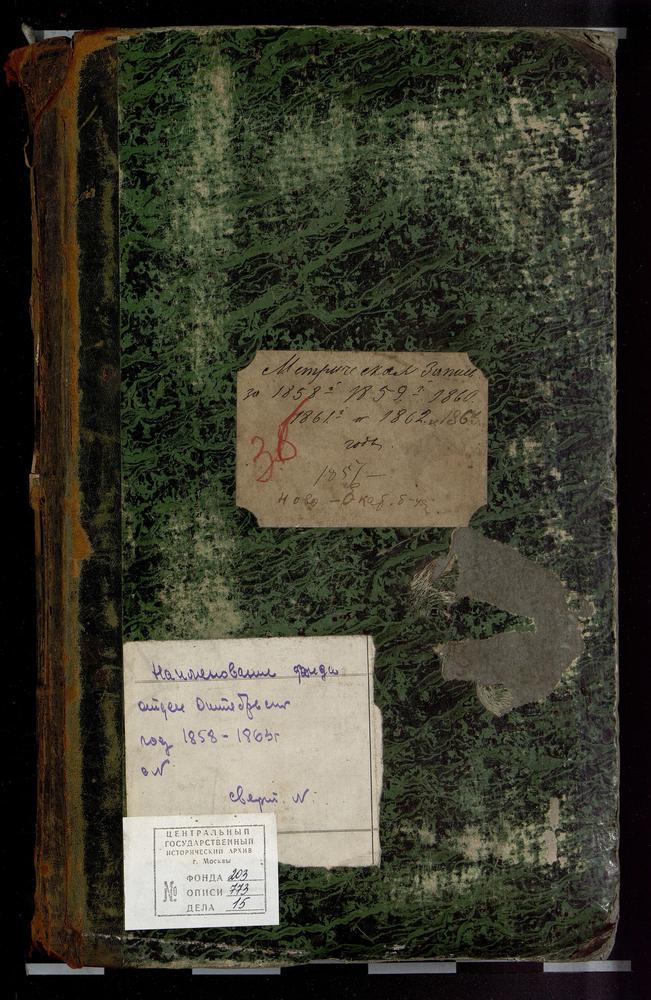 Метрическая Запись
за 1858й 1859й 1860.
1861й и 1862. и 1863
годы.
38
185
Ново
Наименование фонда
отдел Октябрьский
год 1858-1863г
№
сверт. №
ЦЕНТРАЛЬНЫЙ
ГОСУДАРСТВЕННЫЙ
ИСТОРИЧЕСКИЙ АРХИВ
г. Москвы
ФОНДА 203
ОПИСИ 773
ДЕЛА 15